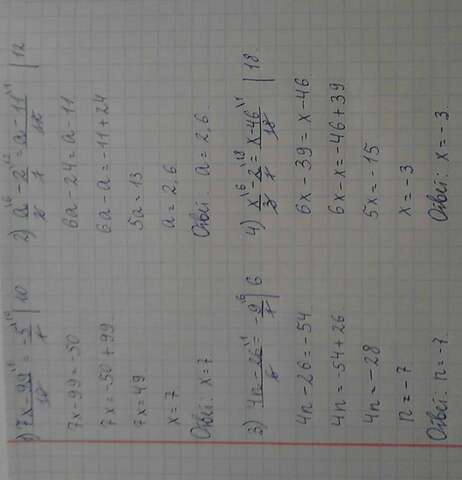 1) 7x-99\1 / 10 = -5\10 / 1 | 10
7x-99=-50
7x=-50+99
7x=49
x=7
Ответ: x=7
2) a\6 / 2 - 2\12 / 1 = a-11\1 / 12 | 12
6a-24=a-11
6a-a=-11+24
5a=13
a=2,6
Ответ: a=2,6.
3) 4n-26\1 / 6 = -9\6 / 1 | 6
4n-26=-54
4n=-54+26
4n=-28
n=-7
Ответ: n=-7.
4) x\6 / 3 - 2\18 / 1 = x-46\1 / 18 | 18
6x-39=x-46
6x-x=-46+39
5x=-15
x=-3
Ответ: x=-3.